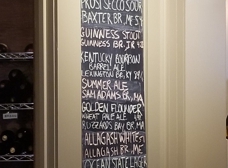 PROSECCO SOUR
BAXTER BR, ME 5%
GUINNESS STOUT
GUINNESS BR. IR
KENTUCKY BOURBON
BARREL ALE
LEXINGTON BR. KY
SUMMER ALE
SAM ADAMS BR, MA
GOLDEN FLOUNDER
WHEAT PALE ALE
BUZZARDS BAY BR, MA
ALLAGASH WHITE
ALLAGASH BR. ME
OCEAN STATE LAGER